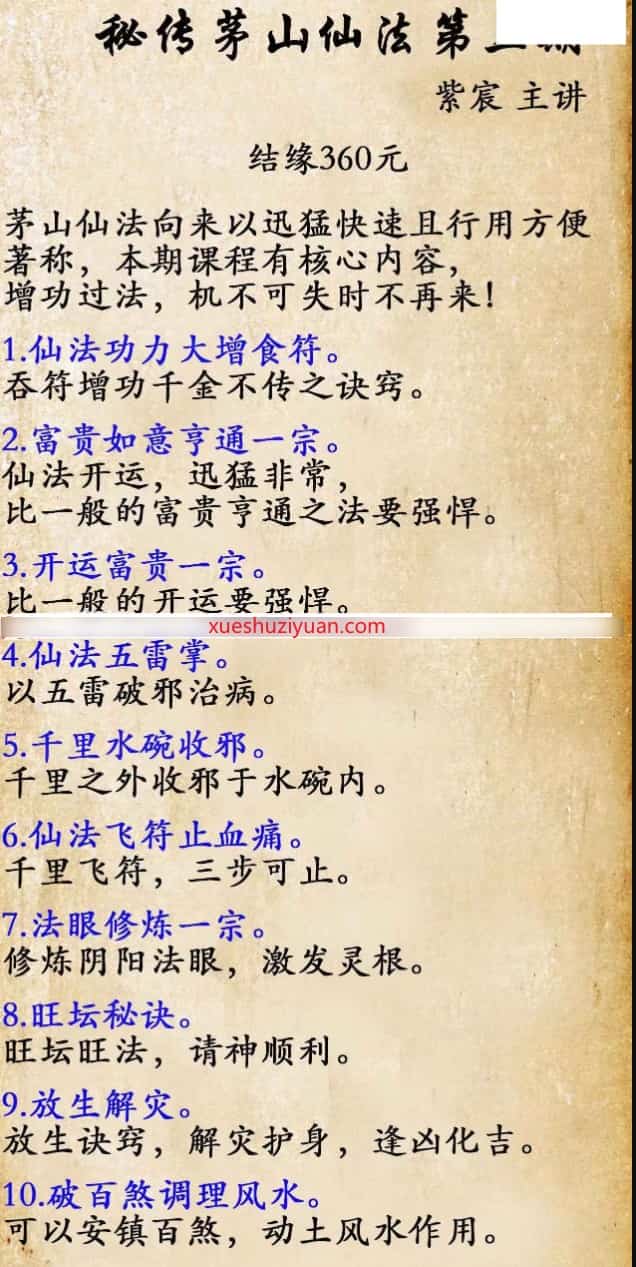 秘传茅山仙法第
紫宸 主讲
结缘360元
茅山仙法向来以迅猛快速且行用方便
著称，本期课程有核心内容，
增功过法，机不可失时不再来！
1.仙法功力大增食符。
吞符增功千金不传之诀窍。
2.富贵如意亨通一宗。
仙法开运，迅猛非常，
比一般的富贵亨通之法要强悍。
3.开运富贵一宗。
比一般的开运要强悍。
xueshuziyuan.com
4.仙法五雷掌。
以五雷破邪治病。
5.千里水碗收邪。
千里之外收邪于水碗内。
6.仙法飞符止血痛。
千里飞符，三步可止。
7.法眼修炼一宗。
修炼阴阳法眼，激发灵根。
8.旺坛秘诀。
旺坛旺法，请神顺利。
9.放生解灾。
放生诀窍，解灾护身，逢凶化吉。
10.破百煞调理风水。
可以安镇百煞，动土风水作用。